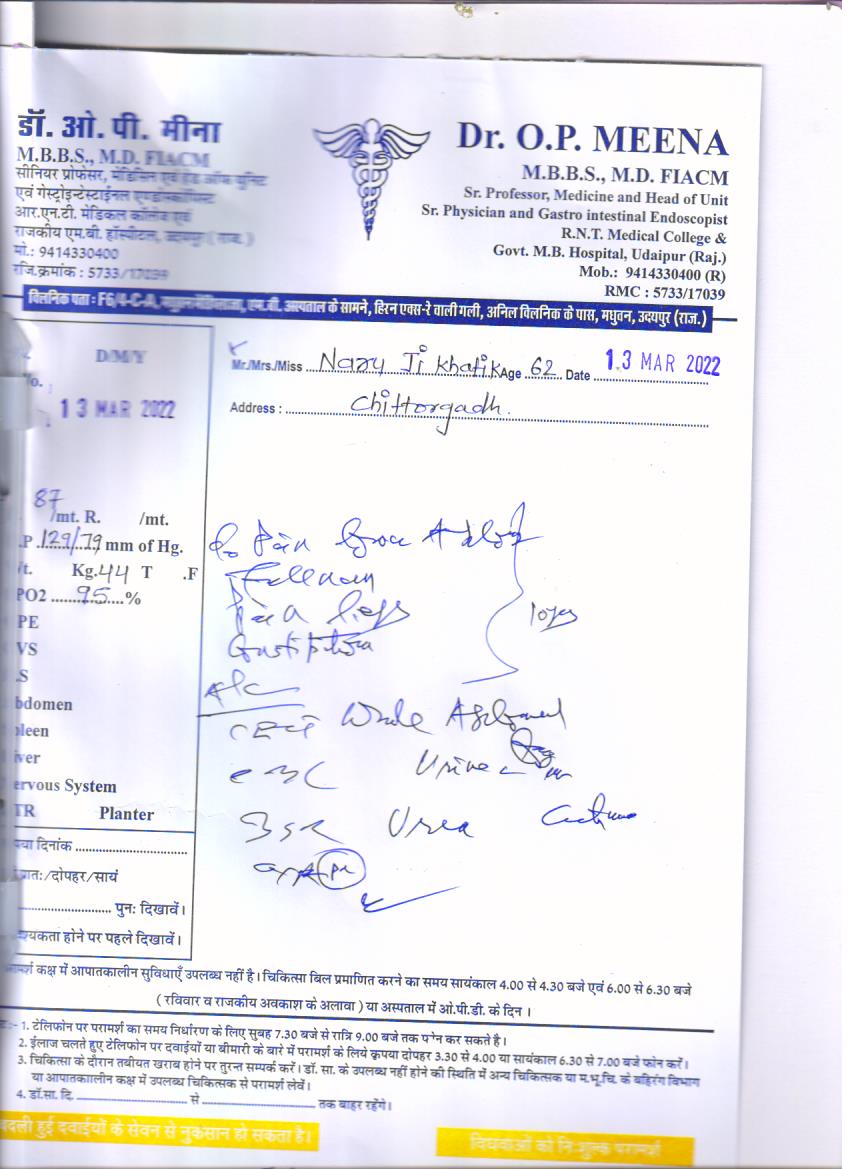 डॉ. ओ. पी. मीना
M.B.B.S., M.D. FIACM
सीनियर प्रोफेसर, मेडिसिन एवं हेड ऑफ यूनिट
एवं गेस्ट्रोइन्टेस्टाईनल एण्डोस्कोपिस्ट
आर.एन.टी. मेडिकल कॉलेज एवं
राजकीय एम.बी. हॉस्पीटल, उदयपुर ( राज. )
मो.: 9414330400
रजि.क्रमांक : 5733/17039
Dr. O.P. MEENA
M.B.B.S., M.D. FIACM
Sr. Professor, Medicine and Head of Unit
Sr. Physician and Gastro intestinal Endoscopist
R.N.T. Medical College &
Govt. M.B. Hospital, Udaipur (Raj.)
Mob.: 9414330400 (R)
RMC : 5733/17039
क्लिनिक पता : F6/4-C-A, एम.बी. अस्पताल के सामने, हिरन एक्स-रे वाली गली, अनिल क्लिनिक के पास, मधुवन, उदयपुर (राज.)
D/M/Y
No.
13 MAR 2022
Mr./Mrs./Miss Naru Ji Khatik Age 62 Date 13 MAR 2022
Address : Chittorgadh.
87
/mt. R. /mt.
.P 129/79 mm of Hg.
t. Kg. 44 T .F
PO2 95 %
PE
VS
.S
bdomen
pleen
iver
ervous System
TR Planter
पुनः दिखावें।
श्यकता होने पर पहले दिखावें।
Pain
Constipation
Adv
CECT Whole Abdomen
CBC Urine
Urea
ामर्श कक्ष में आपातकालीन सुविधाएँ उपलब्ध नहीं है। चिकित्सा बिल प्रमाणित करने का समय सायंकाल 4.00 से 4.30 बजे एवं 6.00 से 6.30 बजे
( रविवार व राजकीय अवकाश के अलावा ) या अस्पताल में ओ.पी.डी. के दिन ।
1. टेलिफोन पर परामर्श का समय निर्धारण के लिए सुबह 7.30 बजे से रात्रि 9.00 बजे तक फोन कर सकते है।
2. ईलाज चलते हुए टेलिफोन पर दवाईयों या बीमारी के बारे में परामर्श के लिये कृपया दोपहर 3.30 से 4.00 या सायंकाल 6.30 से 7.00 बजे फोन करें।
3. चिकित्सा के दौरान तबीयत खराब होने पर तुरन्त सम्पर्क करें। डॉ. सा. के उपलब्ध नहीं होने की स्थिति में अन्य चिकित्सक या म.भू.चि. के बहिरंग विभाग
या आपातकालीन कक्ष में उपलब्ध चिकित्सक से परामर्श लेवें।
4. डॉ.सा. दि. से तक बाहर रहेंगे।
बदली हुई दवाईयों के सेवन से नुकसान हो सकता है।
विधवाओं को निःशुल्क परामर्श